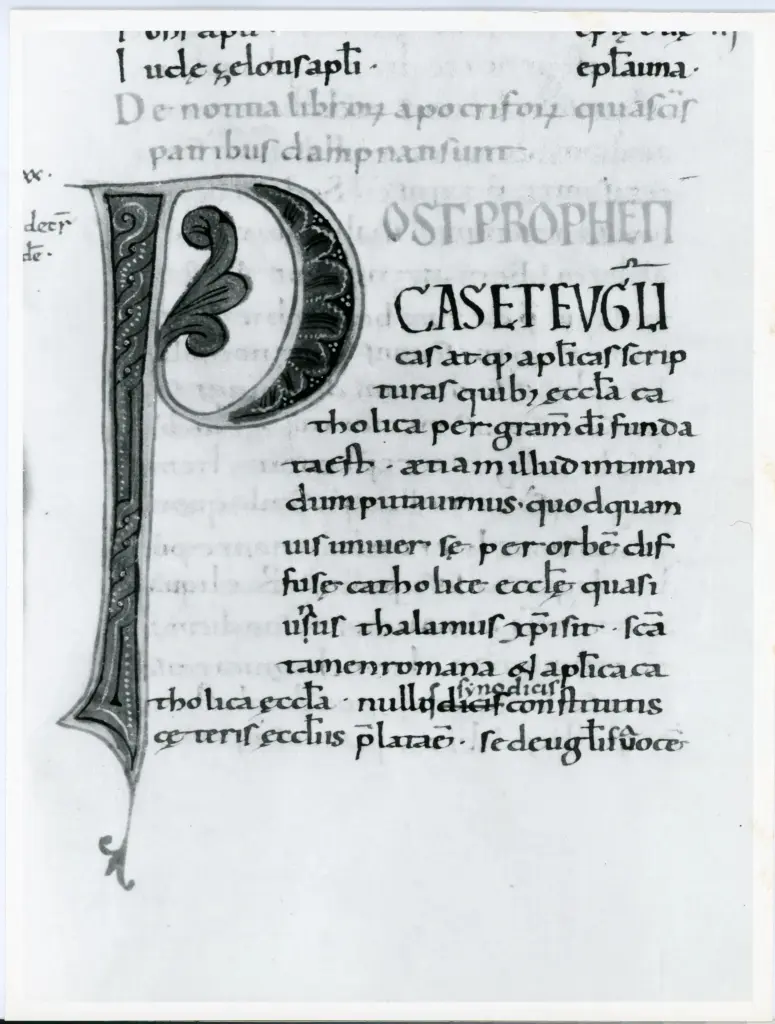 Iude zelotis apłi · epła una ·
De notitia librorꝝ apocriforꝝ qui a scīs
patribus dampnati sunt .
xx.
decr̄
de.
POST PROPHETI
CAS ET EVG̅LI
cas atqꝫ aplicas scrip
turas quibꝫ ęccła ca
tholica per gram̄ dī funda
ta est · ętiam illud intiman
dum putauimus · quod quam
uis uniuersę per orbē dif
fusę catholicę ecclę quasi
unus thalamus xp̄i sit · scā
tamen romana & aplica ca
tholica ęccła · nullis synodicis constitutis
cęteris ęccłiis p̄lata ē · sed euglī uoce